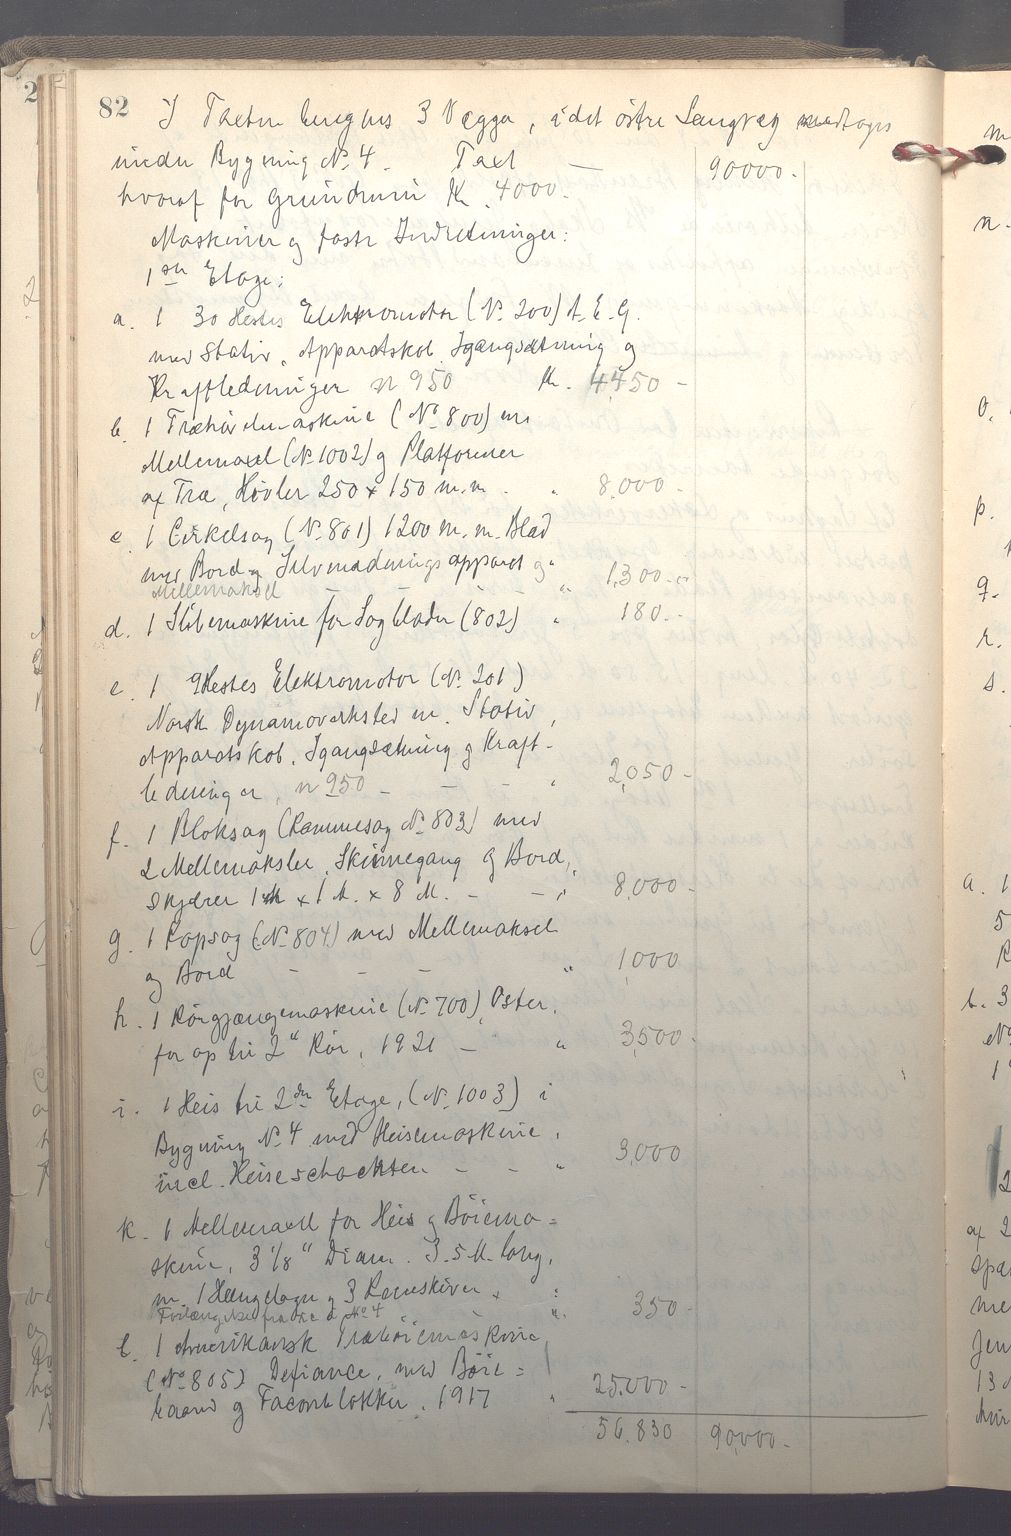 82
I Taxten beregnes 3 Vægge, idet östre Langvæg medtages
under Bygning No 4. Taxt — 90000.-
hvoraf for Grundmur Kr. 4000.-
Maskiner og faste Indretninger:
1ste Etage:
a. 1 30 Hestes Elektromotor (No 200) A.E.G.
med Stativ, Apparatskab, Igangsætning og
Kraftledninger n 950 Kr. 4,450 -
b. 1 Træhövlemaskine (No 800) m.
Mellemaxel (No 1002) og Platformer
af Træ, Hövler 250 x 150 m.m. - " 8,000 -
c. 1 Cirkelsag (No 801) 1200 m.m. Blad
med Bord og Selvmadningsapparat og "
Mellemaksel - - - " 1,300.-
d. 1 Slibemaskine for Sagblader (802) " 180.-
e. 1 9 Hestes Elektromotor (No 201)
Norsk Dynamoverksted m. Stativ,
Apparatskab, Igangsætning og Kraft-
ledninger, n 950 - - - " 2,050 -
f. 1 Bloksag (Rammesag No 803) med
2 Mellemaksler, Skinnegang og Bord,
Skjærer 1 M x 1 M. x 8 M. - - " 8,000 -
g. 1 Kapsag (No 804) med Mellemaksel
og Bord - - - " 1,000
h. 1 Rörgjængemaskine (No 700), Oster,
for op til 2" Rör, 1921 - " 3,500 -
i. 1 Heis til 2den Etage, (No 1003) i
Bygning No 4 med Heisemaskine,
incl. Heiseschackten - - " 3,000
k. 1 Mellemaxel for Heis og Böiema=
skine, 3 1/8" Diam. 3.5 M. lang,
m. 1 Hængelager og 3 Remskiver, "
No 4 " 350 -
l. 1 Amerikansk Træböiemaskine
(No 805) Defiance, med Böie=
baand og Faconblokker, 1917 " 25,000 -
56,830 90,000.-